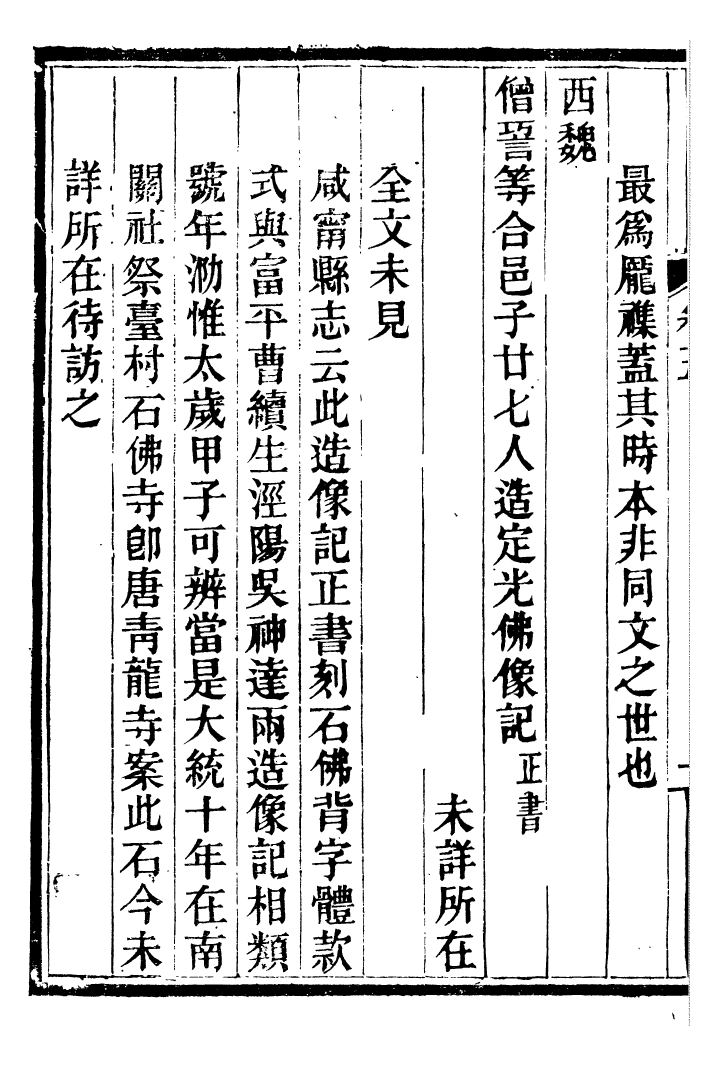 最爲厖襍蓋其時本非同文之世也
西魏
僧䛒等合邑子廿七人造定光佛像記正書
未詳所在
全文未見
咸甯縣志云此造像記正書刻石佛背字體款
式與富平曹續生涇陽吳神達兩造像記相類
號年泐惟太歲甲子可辨當是大統十年在南
關社祭臺村石佛寺卽唐靑龍寺案此石今未
詳所在待訪之